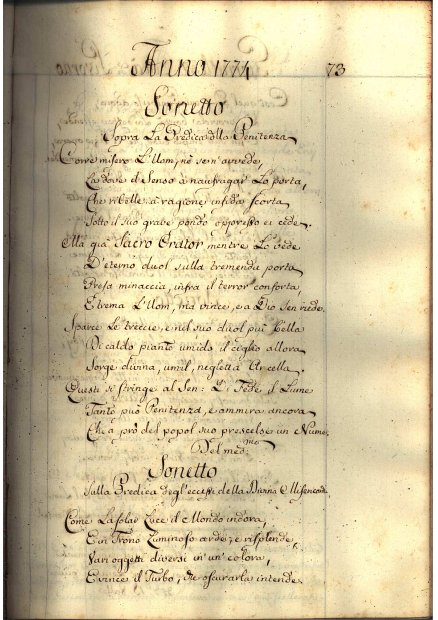 Anno 1774 73
Sonetto
Sopra La Predica della Penitenza
Corre misero L'Uom, nè sen' avvede,
Là dove il Senso à naufragar Lo porta,
Che ribelle à ragione infida scorta
Sotto il suo grave pondo oppresso ei cede.
Ma già Sacro Orator mentre Lo vede
D'eterno duol sulla tremenda porta
Presa minaccia, infra il terror conforta,
E trema L'Uom, mà vince, e à Dio sen riede.
Sparse Le treccie, e nel suo duol più bella
Di caldo pianto umido il ciglio allora
Sorge divina, umil, negletta Ancella.
Questi si stringe al Sen: Di Fede il Lume
Tanto può Penitenza, e ammira ancora
Che à prò del popol suo prescelse un Nume.
Del med.mo
Sonetto
Sulla Predica degl'eccessi della Divina Misericord
Come La Solar Luce il Mondo indora,
E in Trono Luminoso arde, e risplende,
Vari oggetti diversi in un' colora,
E vince il Turbo, che oscurarla intende